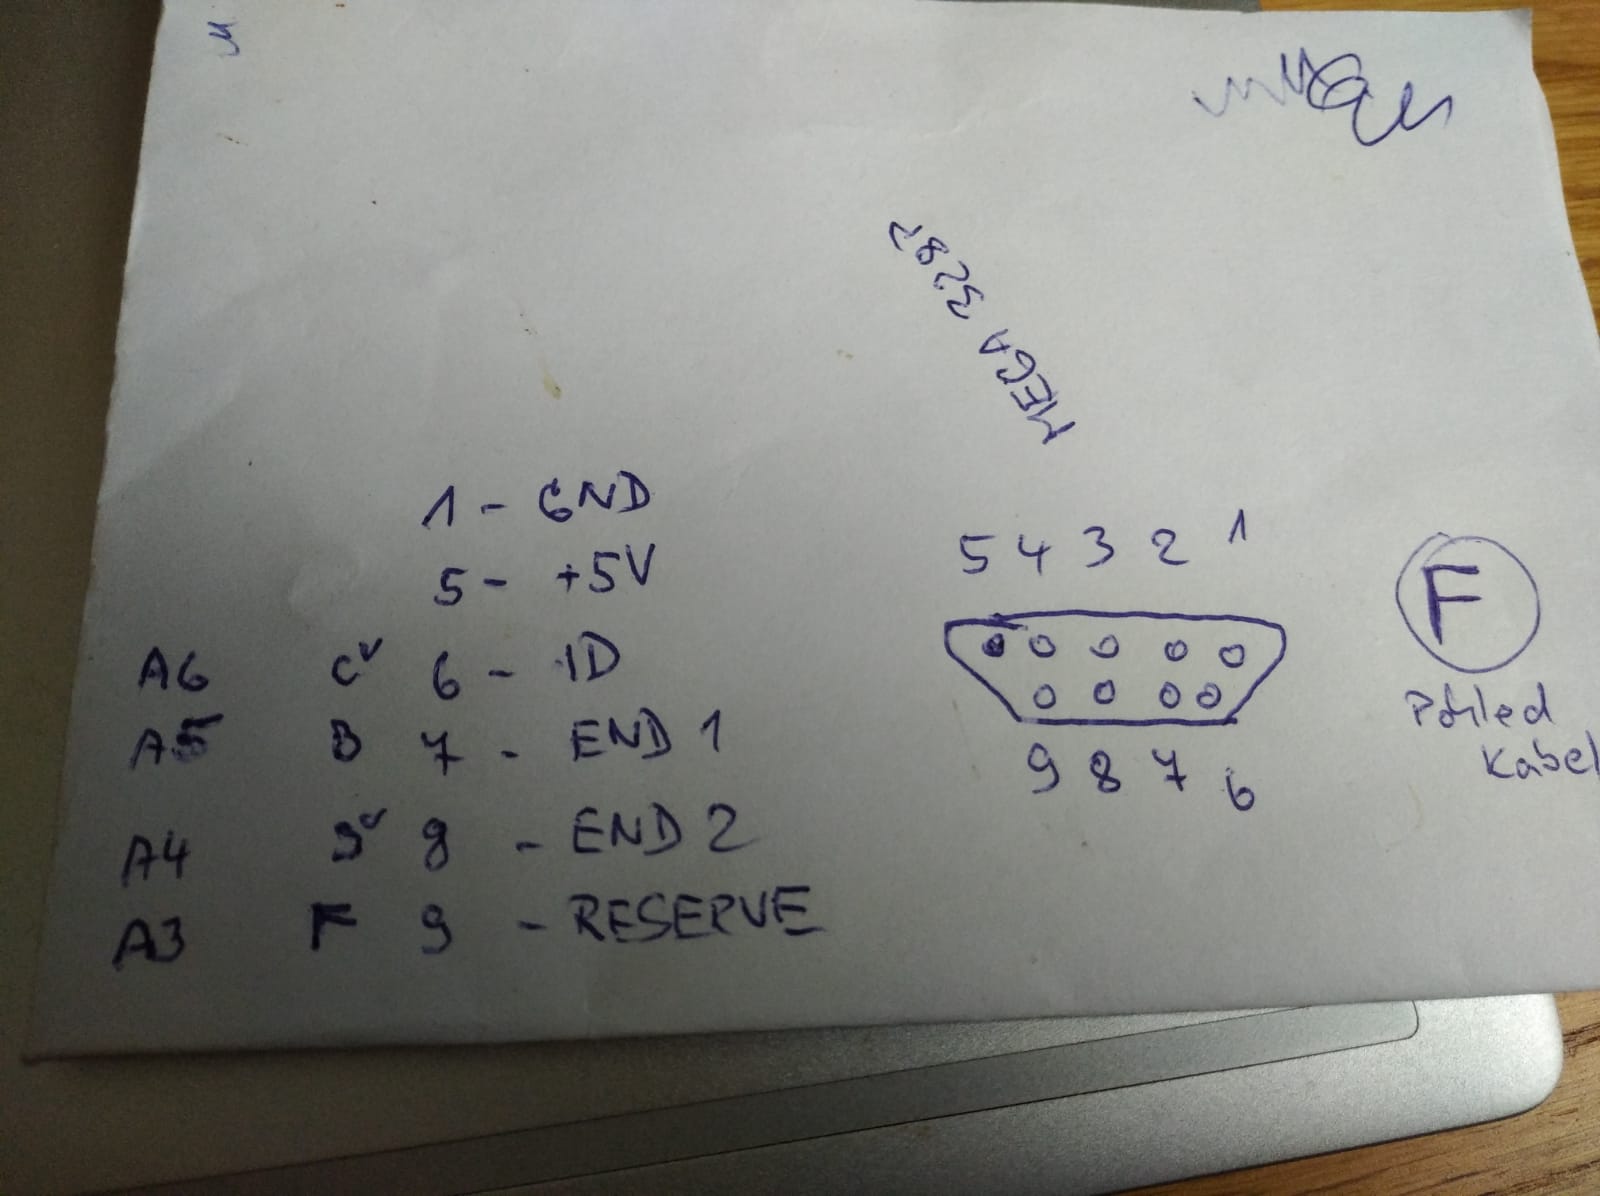 MEGA 328?
1 - GND
5 - +5V
A6 Č 6 - ID
A5 B 7 - END 1
A4 Š 8 - END 2
A3 F 9 - RESERVE
5 4 3 2 1
9 8 7 6
F
Pohled
Kabel